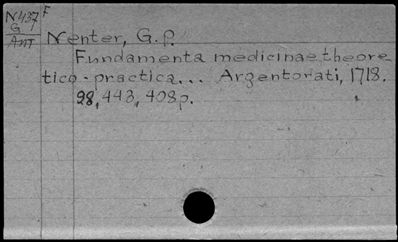 N437 F
G
ANT
Nenter, G.P.
Fundamenta medicinae theore
tico-practica... Argentorati, 1718.
98, 443, 408p.